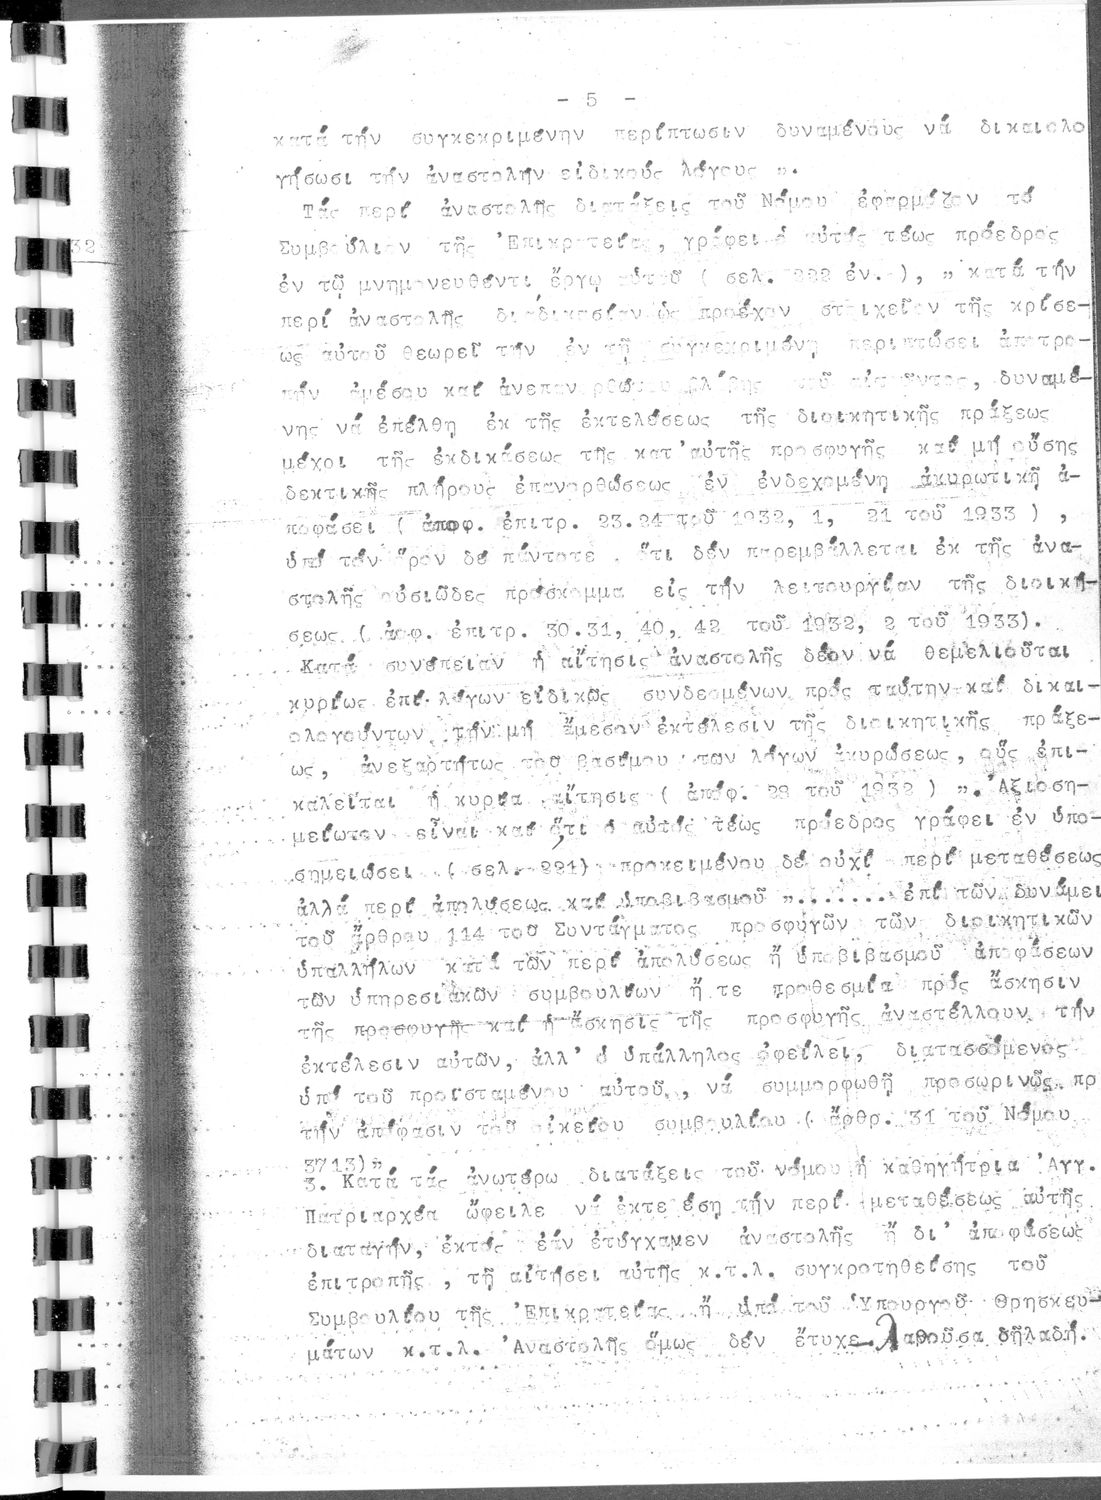 - 5 -
κατά τήν συγκεκριμένην περίπτωσιν δυναμένους νά δικαιολο
γήσωσι τήν ἀναστολήν εἰδικούς λόγους ".
Τάς περί ἀναστολῆς διατάξεις τοῦ Νόμου ἐφαρμόζον τό
32
Συμβούλιον τῆς Ἐπικρατείας, γράφει ὁ αὐτός τέως πρόεδρος
ἐν τῷ μνημονευθέντι ἔργῳ αὐτοῦ ( σελ. 222 ἐν. ), " κατά τήν
περί ἀναστολῆς διαδικασίαν ὡς προέχον στοιχεῖον τῆς κρίσε-
ως αὐτοῦ θεωρεῖ τήν ἐν τῇ συγκεκριμένῃ περιπτώσει ἀποτρο-
πήν ἀμέσου καί ἀνεπανορθώτου βλάβης τοῦ αἰτοῦντος, δυναμέ-
νης νά ἐπέλθῃ ἐκ τῆς ἐκτελέσεως τῆς διοικητικῆς πράξεως
μέχρι τῆς ἐκδικάσεως τῆς κατ' αὐτῆς προσφυγῆς καί μή οὔσης
δεκτικῆς πλήρους ἐπανορθώσεως ἐν ἐνδεχομένῃ ἀκυρωτικῇ ἀ-
ποφάσει ( ἀποφ. ἐπιτρ. 23.24 τοῦ 1932, 1, 21 τοῦ 1933 ) ,
ὑπό τόν ὅρον δέ πάντοτε . ὅτι δέν παρεμβάλλεται ἐκ τῆς ἀνα-
στολῆς οὐσιῶδες πρόσκομμα εἰς τήν λειτουργίαν τῆς διοική-
σεως ( ἀοφ. ἐπιτρ. 30.31, 40, 42 τοῦ 1932, 2 τοῦ 1933).
Κατά συνέπειαν ἡ αἴτησις ἀναστολῆς δέον νά θεμελιοῦται
κυρίως ἐπί λόγων εἰδικῶς συνδεομένων πρός ταύτην καί δικαι-
ολογούντων τήν μή ἄμεσον ἐκτέλεσιν τῆς διοικητικῆς πράξε-
ως, ἀνεξαρτήτως τοῦ βασίμου τῶν λόγων ἀκυρώσεως, οὕς ἐπι-
καλεῖται ἡ κυρία αἴτησις ( ἀπόφ. 28 τοῦ 1932 ) ". Ἀξιοση-
μείωτον εἶναι καί ὅτι ὁ αὐτός τέως πρόεδρος γράφει ἐν ὑπο-
σημειώσει ( σελ. 221) προκειμένου δέ οὐχί περί μεταθέσεως
ἀλλά περί ἀπολύσεως καί ὑποβιβασμοῦ "....... ἐπί τῶν δυνάμει
τοῦ ἄρθρου 114 τοῦ Συντάγματος προσφυγῶν τῶν διοικητικῶν
ὑπαλλήλων κατά τῶν περί ἀπολύσεως ἤ ὑποβιβασμοῦ ἀποφάσεων
τῶν ὑπηρεσιακῶν συμβουλίων ἥ τε προθεσμία πρός ἄσκησιν
τῆς προσφυγῆς καί ἡ ἄσκησις τῆς προσφυγῆς ἀναστέλλουν τήν
ἐκτέλεσιν αὐτῶν, ἀλλ' ὁ ὑπάλληλος ὀφείλει, διατασσόμενος
ὑπό τοῦ προϊσταμένου αὐτοῦ, , νά συμμορφωθῇ προσωρινῶς πρ
τήν ἀπόφασιν τοῦ οἰκείου συμβουλίου ( ἄρθρ. 31 τοῦ Νόμου
3713)"
3. Κατά τάς ἀνωτέρω διατάξεις τοῦ νόμου ἡ καθηγήτρια Ἀγγ.
Πατριαρχέα ὤφειλε νά ἐκτε έσῃ τήν περί μεταθέσεως αὐτῆς
διαταγήν, ἐκτός ἐάν ἐτύγχανεν ἀναστολῆς ἤ δι' ἀποφάσεως
ἐπιτροπῆς , τῇ αἰτήσει αὐτῆς κ.τ.λ. συγκροτηθείσης τοῦ
Συμβουλίου τῆς Ἐπικρατείας ἤ ὑπό τοῦ Ὑπουργοῦ Θρησκευ-
μάτων κ.τ.λ. Ἀναστολῆς ὅμως δέν ἔτυχε. λαθοῦσα δῆλαδή.